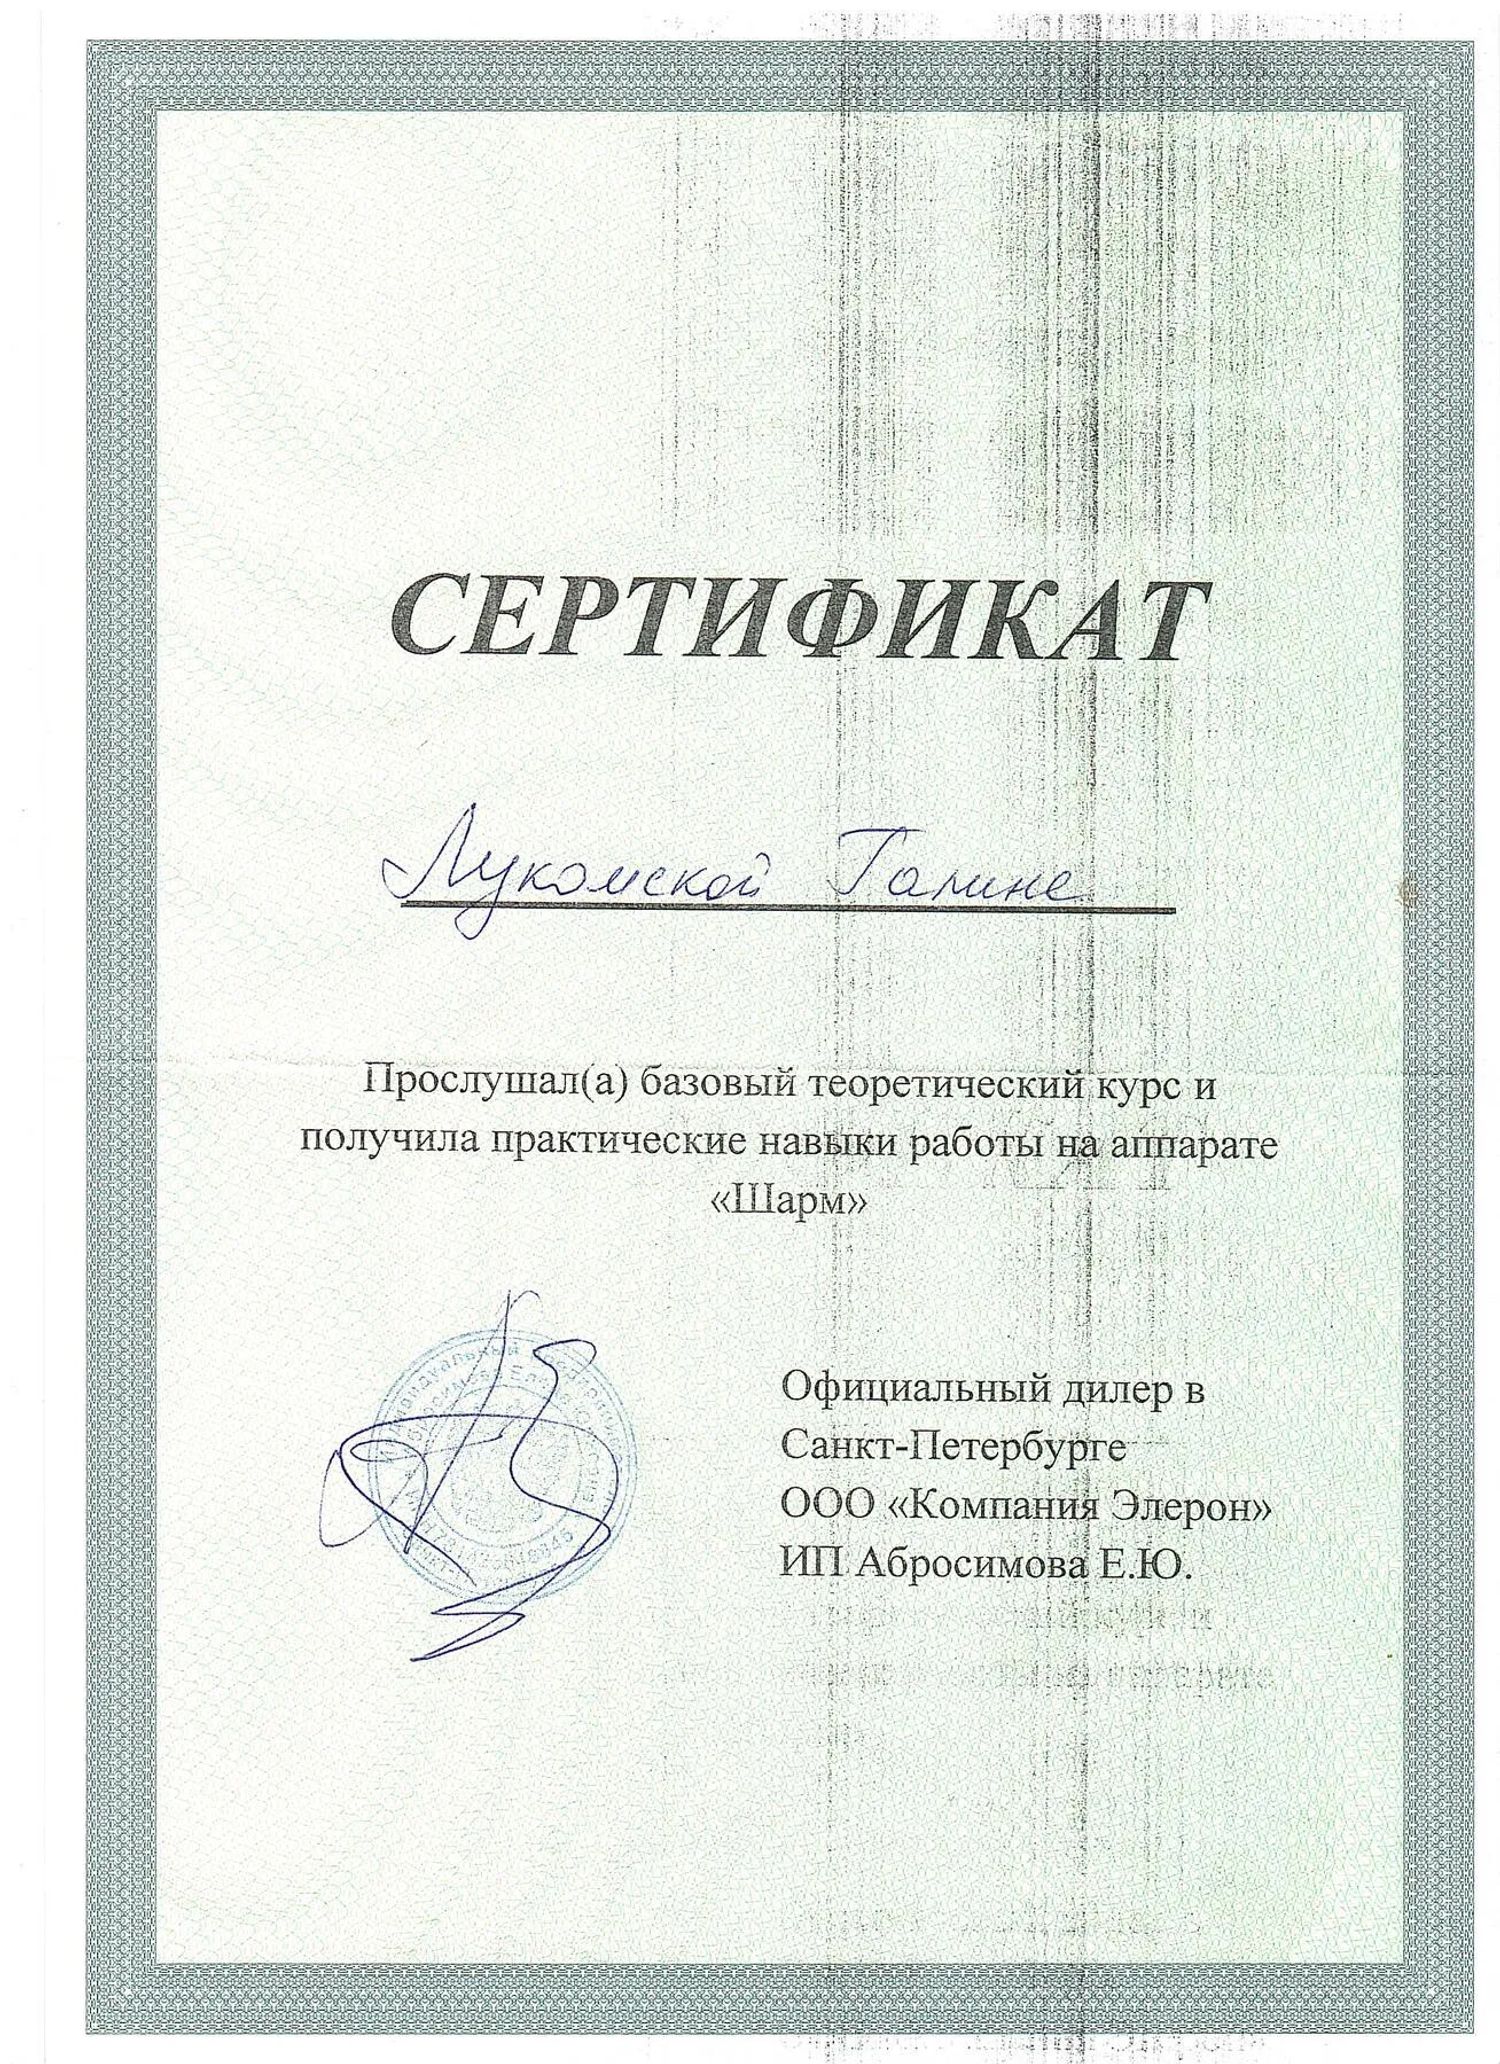 СЕРТИФИКАТ
Лукомской Галине
Прослушал(а) базовый теоретический курс и
получила практические навыки работы на аппарате
«Шарм»
Официальный дилер в
Санкт-Петербурге
ООО «Компания Элерон»
ИП Абросимова Е.Ю.